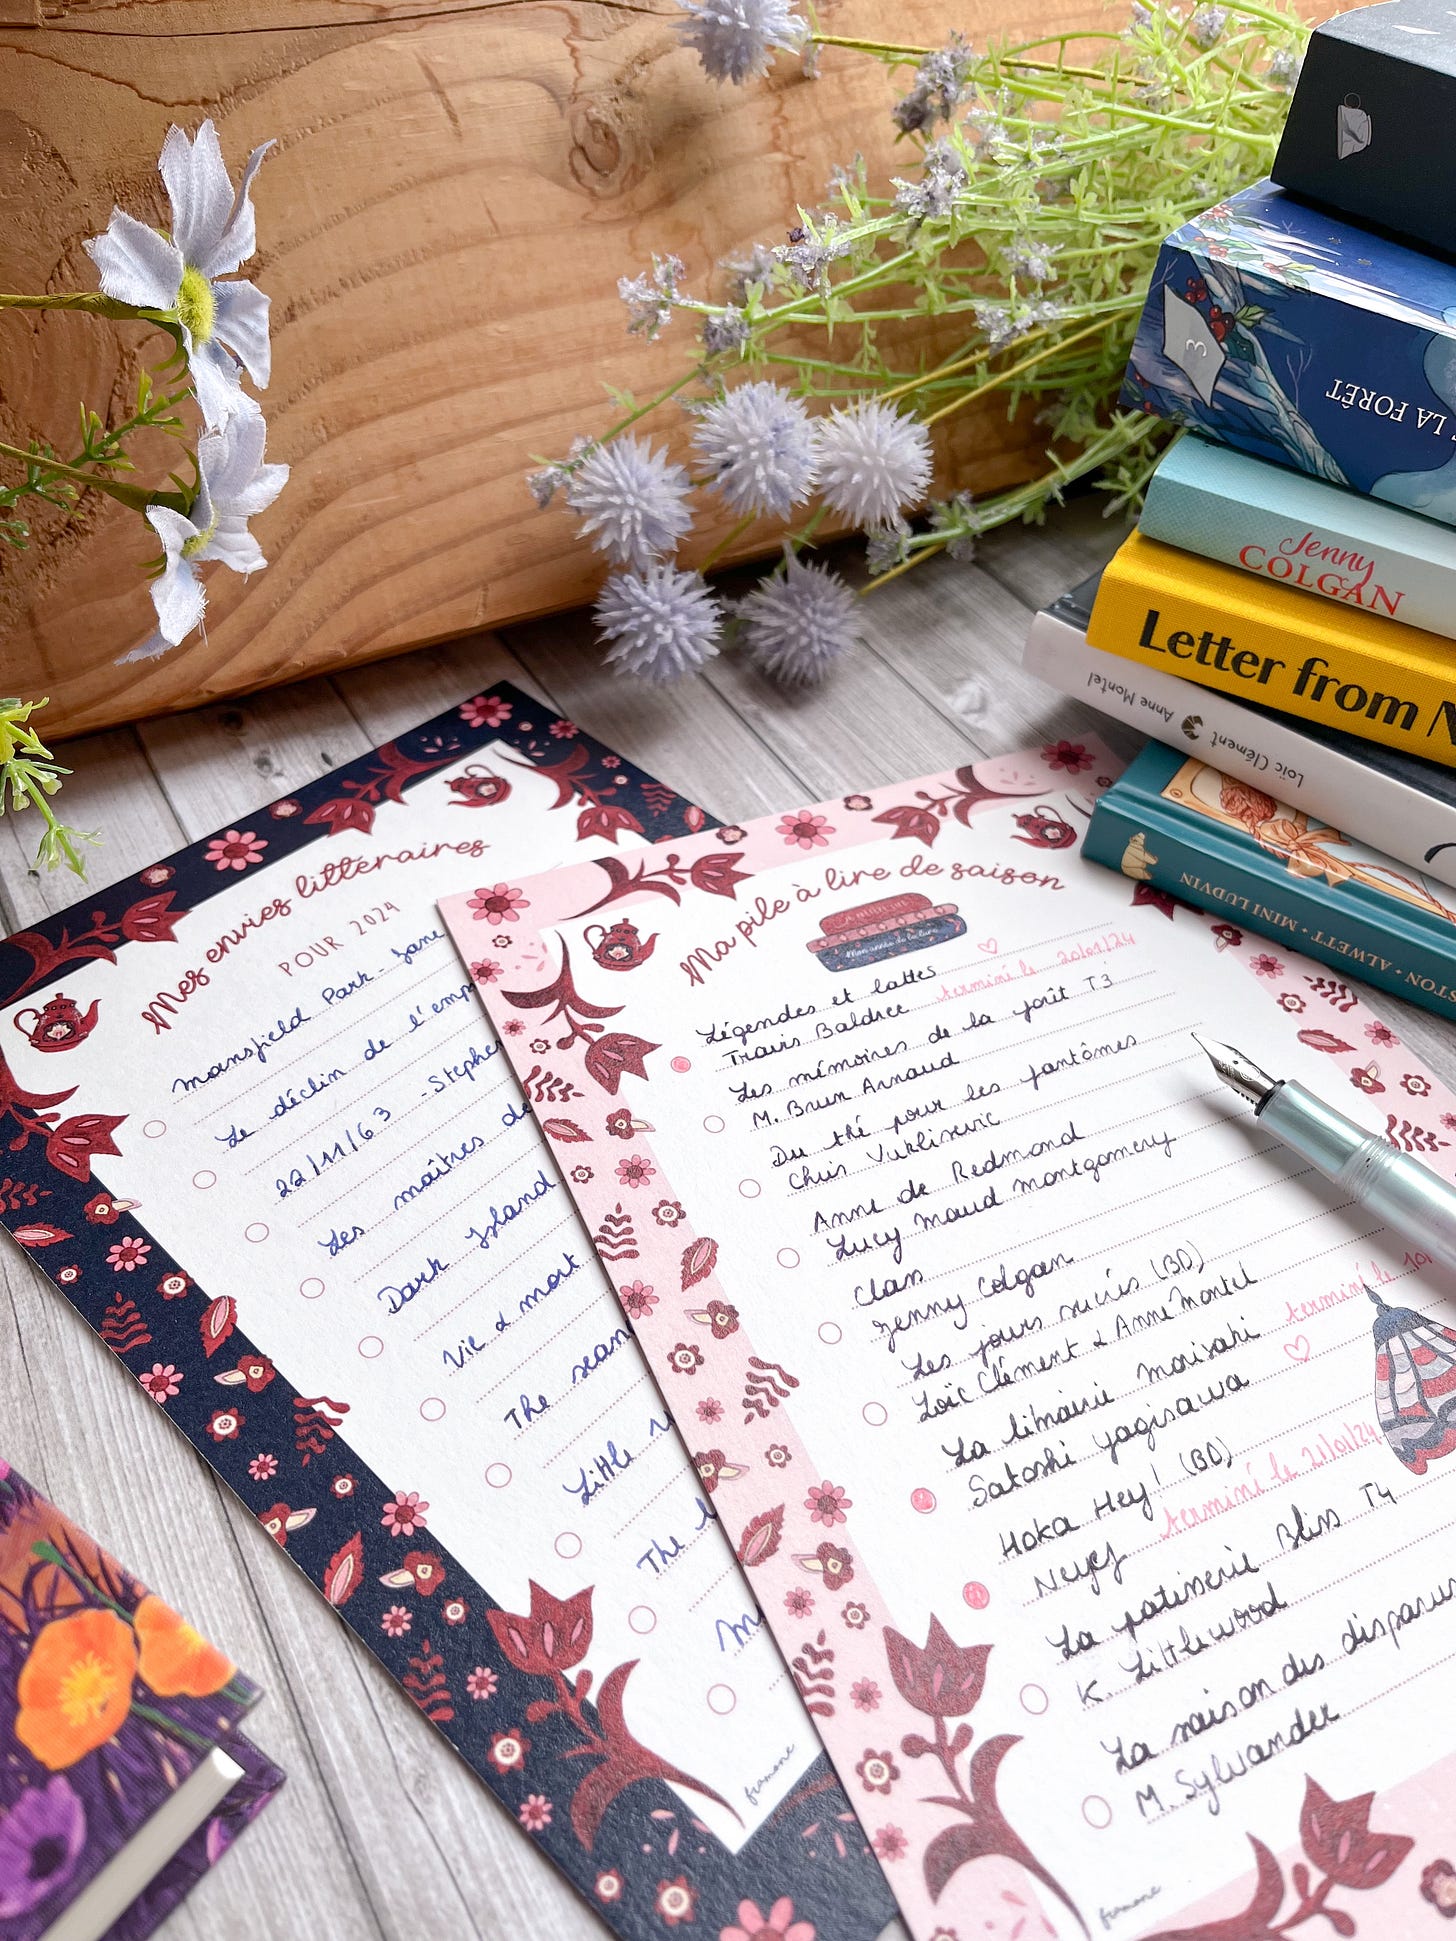 3
LA FORÊT
Jenny
COLGAN
Letter from N
Anne Montel
Loïc Clément
MINI LUDVIN
ALWETT
STON
Mes envies littéraires
POUR 2024
Mansfield Park - Jane
Le déclin de l'emp
22/11/63 - Stephen
Les maîtres de
Dark Island
Vie & mort
The sean
Little
The
framone
Ma pile à lire de saison
Mon année de lecture
Légendes et lattes
Travis Baldree terminé le 20/01/24
Les mémoires de la forêt T3
M. Brun Arnaud
Du thé pour les fantômes
Chris Vuklisevic
Anne de Redmond
Lucy Maud Montgomery
Clan
Jenny Colgan
Les jours sucrés (BD)
Loïc Clément & Anne Montel
La librairie Morisaki terminé le 10/
Satoshi Yagisawa
Hoka Hey! (BD)
Neyef terminé le 21/01/24
La patisserie Bliss T4
K. Littlewood
La maison des disparus
M. Sylvander
framone